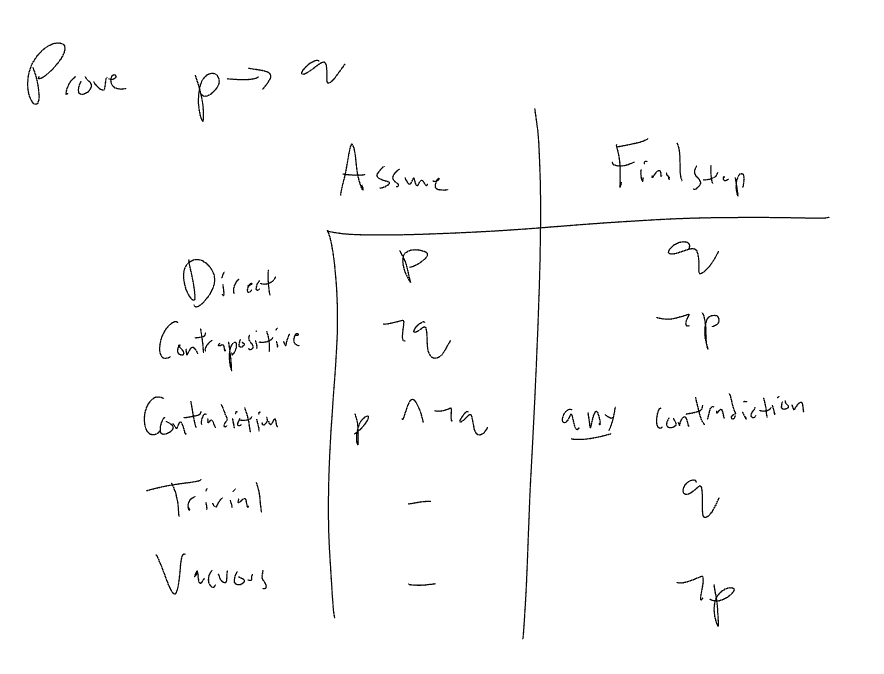 Prove p → q
Assume Final step
Direct p q
Contrapositive ¬q ¬p
Contradiction p ∧ ¬q any contradiction
Trivial – q
Vacuous – ¬p